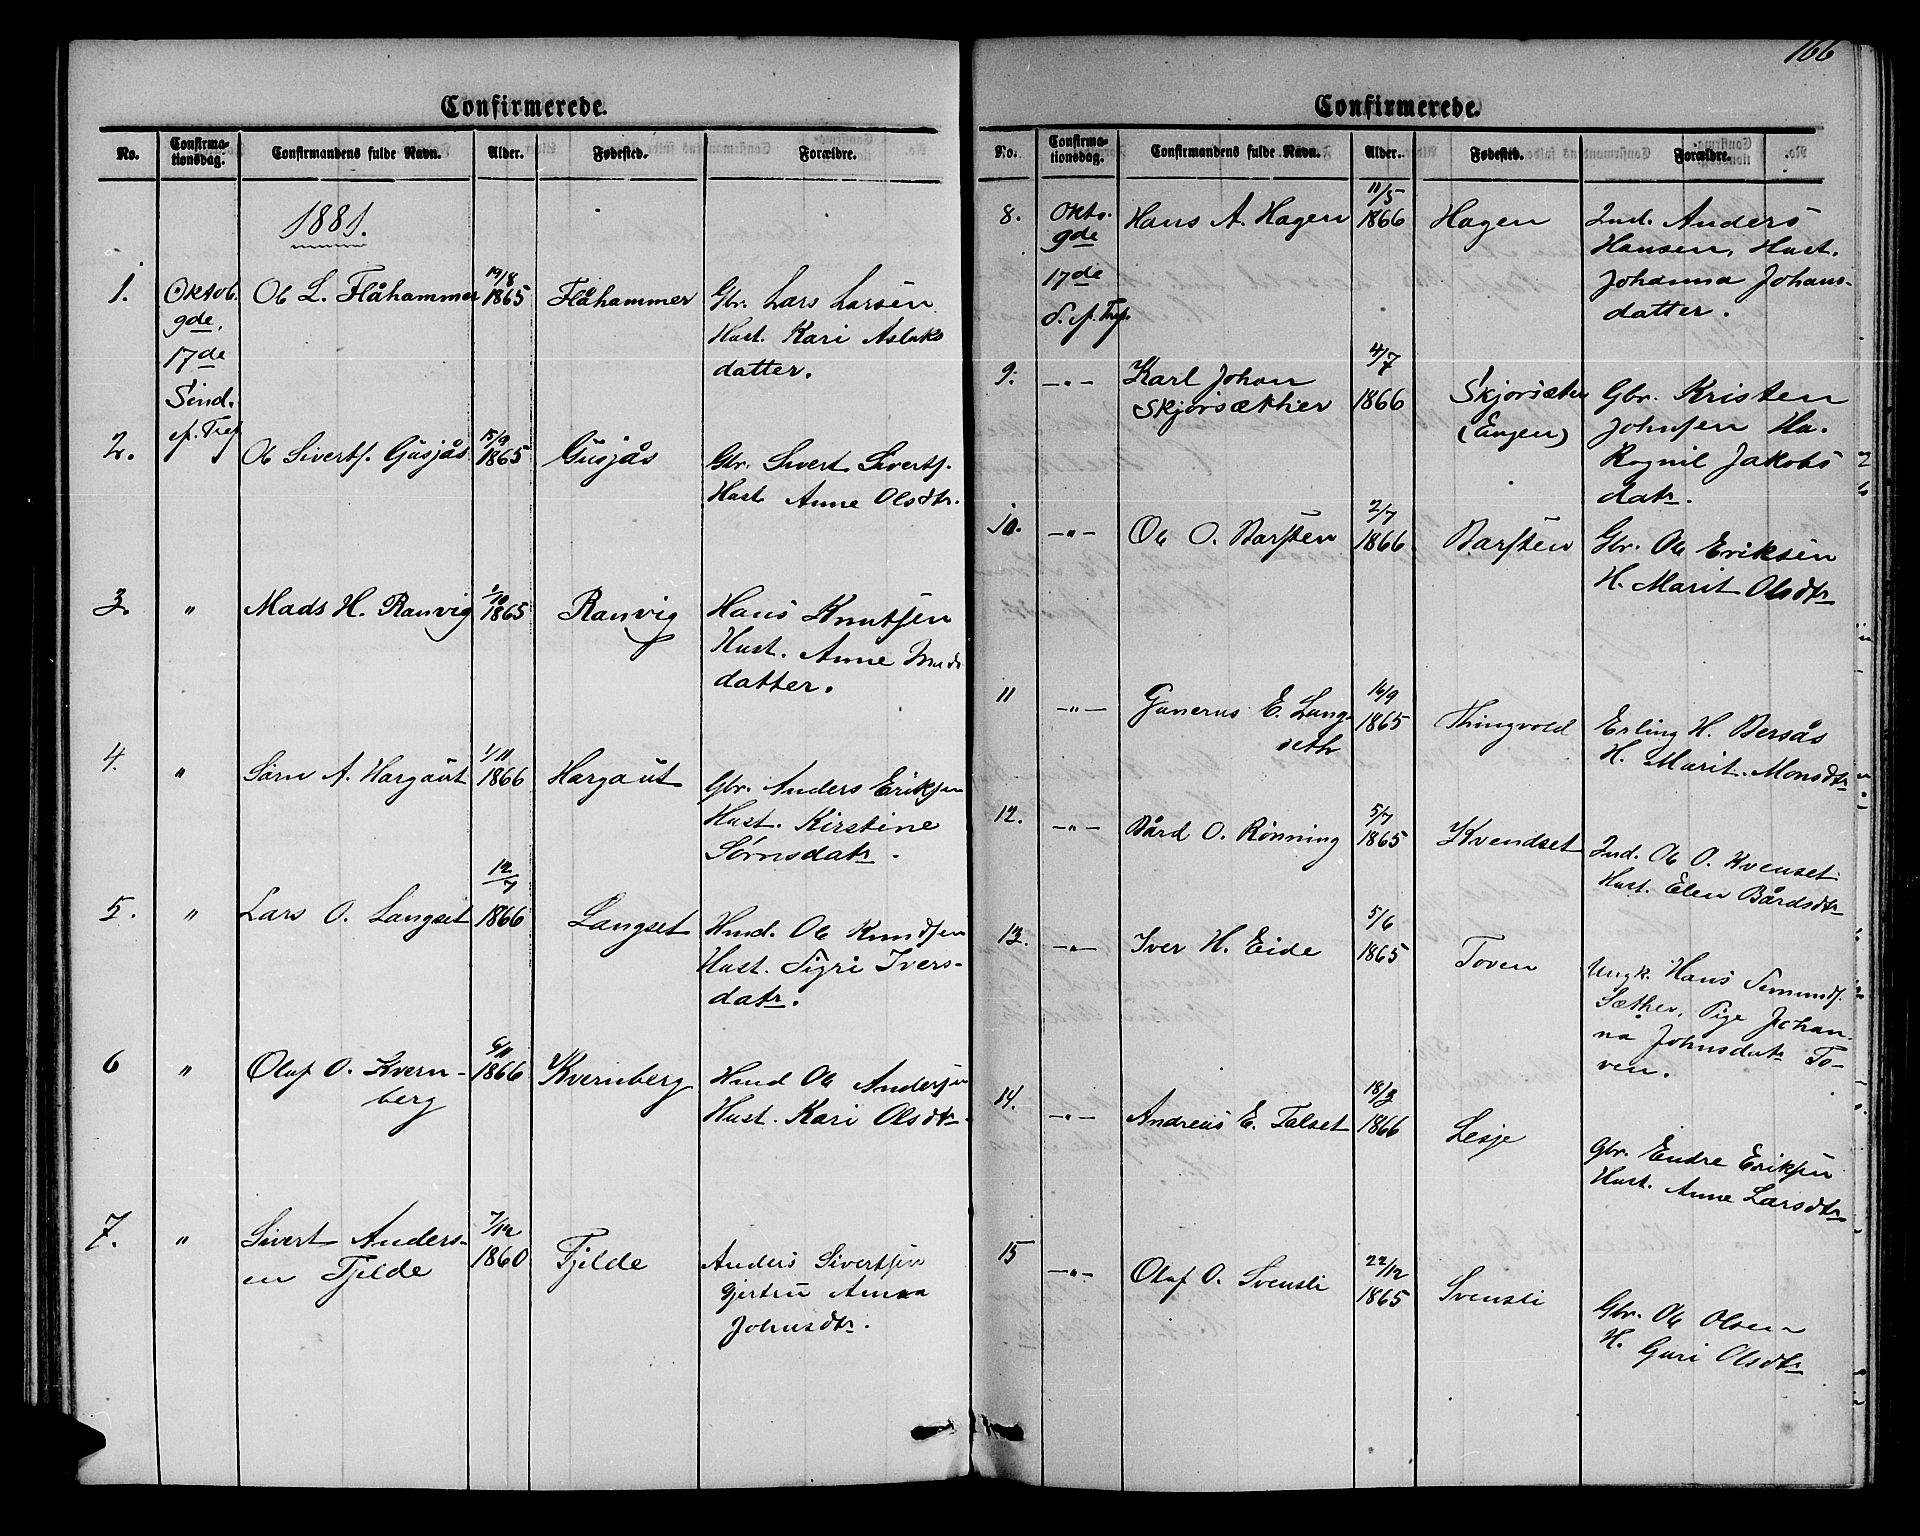 166
Confirmerede.
No. Confirma-tionsdag. Confirmandens fulde Navn. Alder. Fødested. Forældre.
1881.
1. Oktob. 9de, 17de Sønd. e. Tref Ole L. Flåhammer 19/8 1865 Flåhammer Gbr. Lars Larsen
Hust. Kari Aslaks
datter.
2. Ole Siverts. Gusjås 15/9 1865 Gusjås Gbr. Sivert Siverts.
Hust. Anne Olsdtr.
3. " Mads H. Ranvig 1/10 1865 Ranvig Hans Knutsen
Hust. Anne Mads
datter.
4. " Sørn A. Hargaut 1/11 1866 Hargaut Gbr. Anders Eriksen
Hust. Kirstine
Sørnsdatr.
5. " Lars O. Langset 12/7 1866 Langset Hmd. Ole Knudsen
Hust. Sigri Ivers-
datr.
6 " Olaf O. Kvern- 1866 Kvernberg Hmd Ole Andersen
berg Hust. Kari Olsdtr.
7. " Sivert Anders- 7/12 1860 Fjelde Anders Sivertsen
en Fjelde Gjertru Anna
Johnsdtr.
Confirmerede.
No. Confirma-tionsdag. Confirmandens fulde Navn. Alder. Fødested. Forældre.
8. Okto. 9de 17de S. e. Tref. Hans A. Hagen 11/5 1866 Hagen Ind. Anders
Hansen, Hust.
Johanna Johans-
datter.
9. -"- Karl Johan 4/7 1866 Skjørsæter Gbr. Kristen
Skjørsæther (Engen) Johnsen Hu.
Ragnil Jakobs
datr.
10. -"- Ole O. Barsten 2/7 1866 Barsten Gbr. Ole Eriksen
H. Marit Olsdtr
11 -"- Gunerus E. Lang- 16/9 1865 Thingvold Erling H. Bersås
seth H. Marit Monsdtr
12. -"- Bård O. Rønning 5/7 1865 Kvendset Ind. Ole O. Kvenset
Hust. Elen Bårdsdtr
13. -"- Iver H. Eide 5/6 1865 Toven Ungk. Hans
Sæther, Pige Johan-
na Johnsdatr To-
ven.
14. -"- Andreas E. Talset 18/3 1866 Lesje Gbr. Endre Eriksen
Hust. Anne Larsdtr
15 -"- Olaf O. Svensli 22/12 1865 Svensli Gbr. Ole Olsen
H. Guri Olsdtr